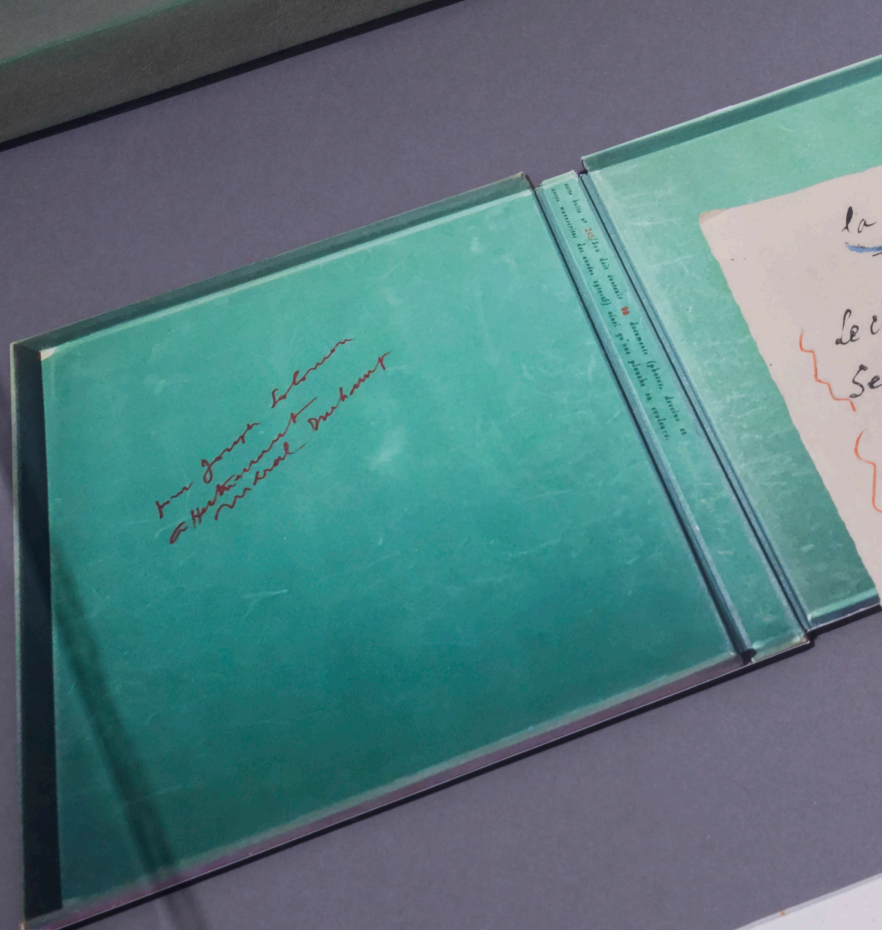 pour Joseph Solomon
affectueusement
Marcel Duchamp
cette boîte n° /300 doit contenir documents (photos, dessins et
notes manuscrites des années ) ainsi qu'une planche en couleurs.
la
Le
Se